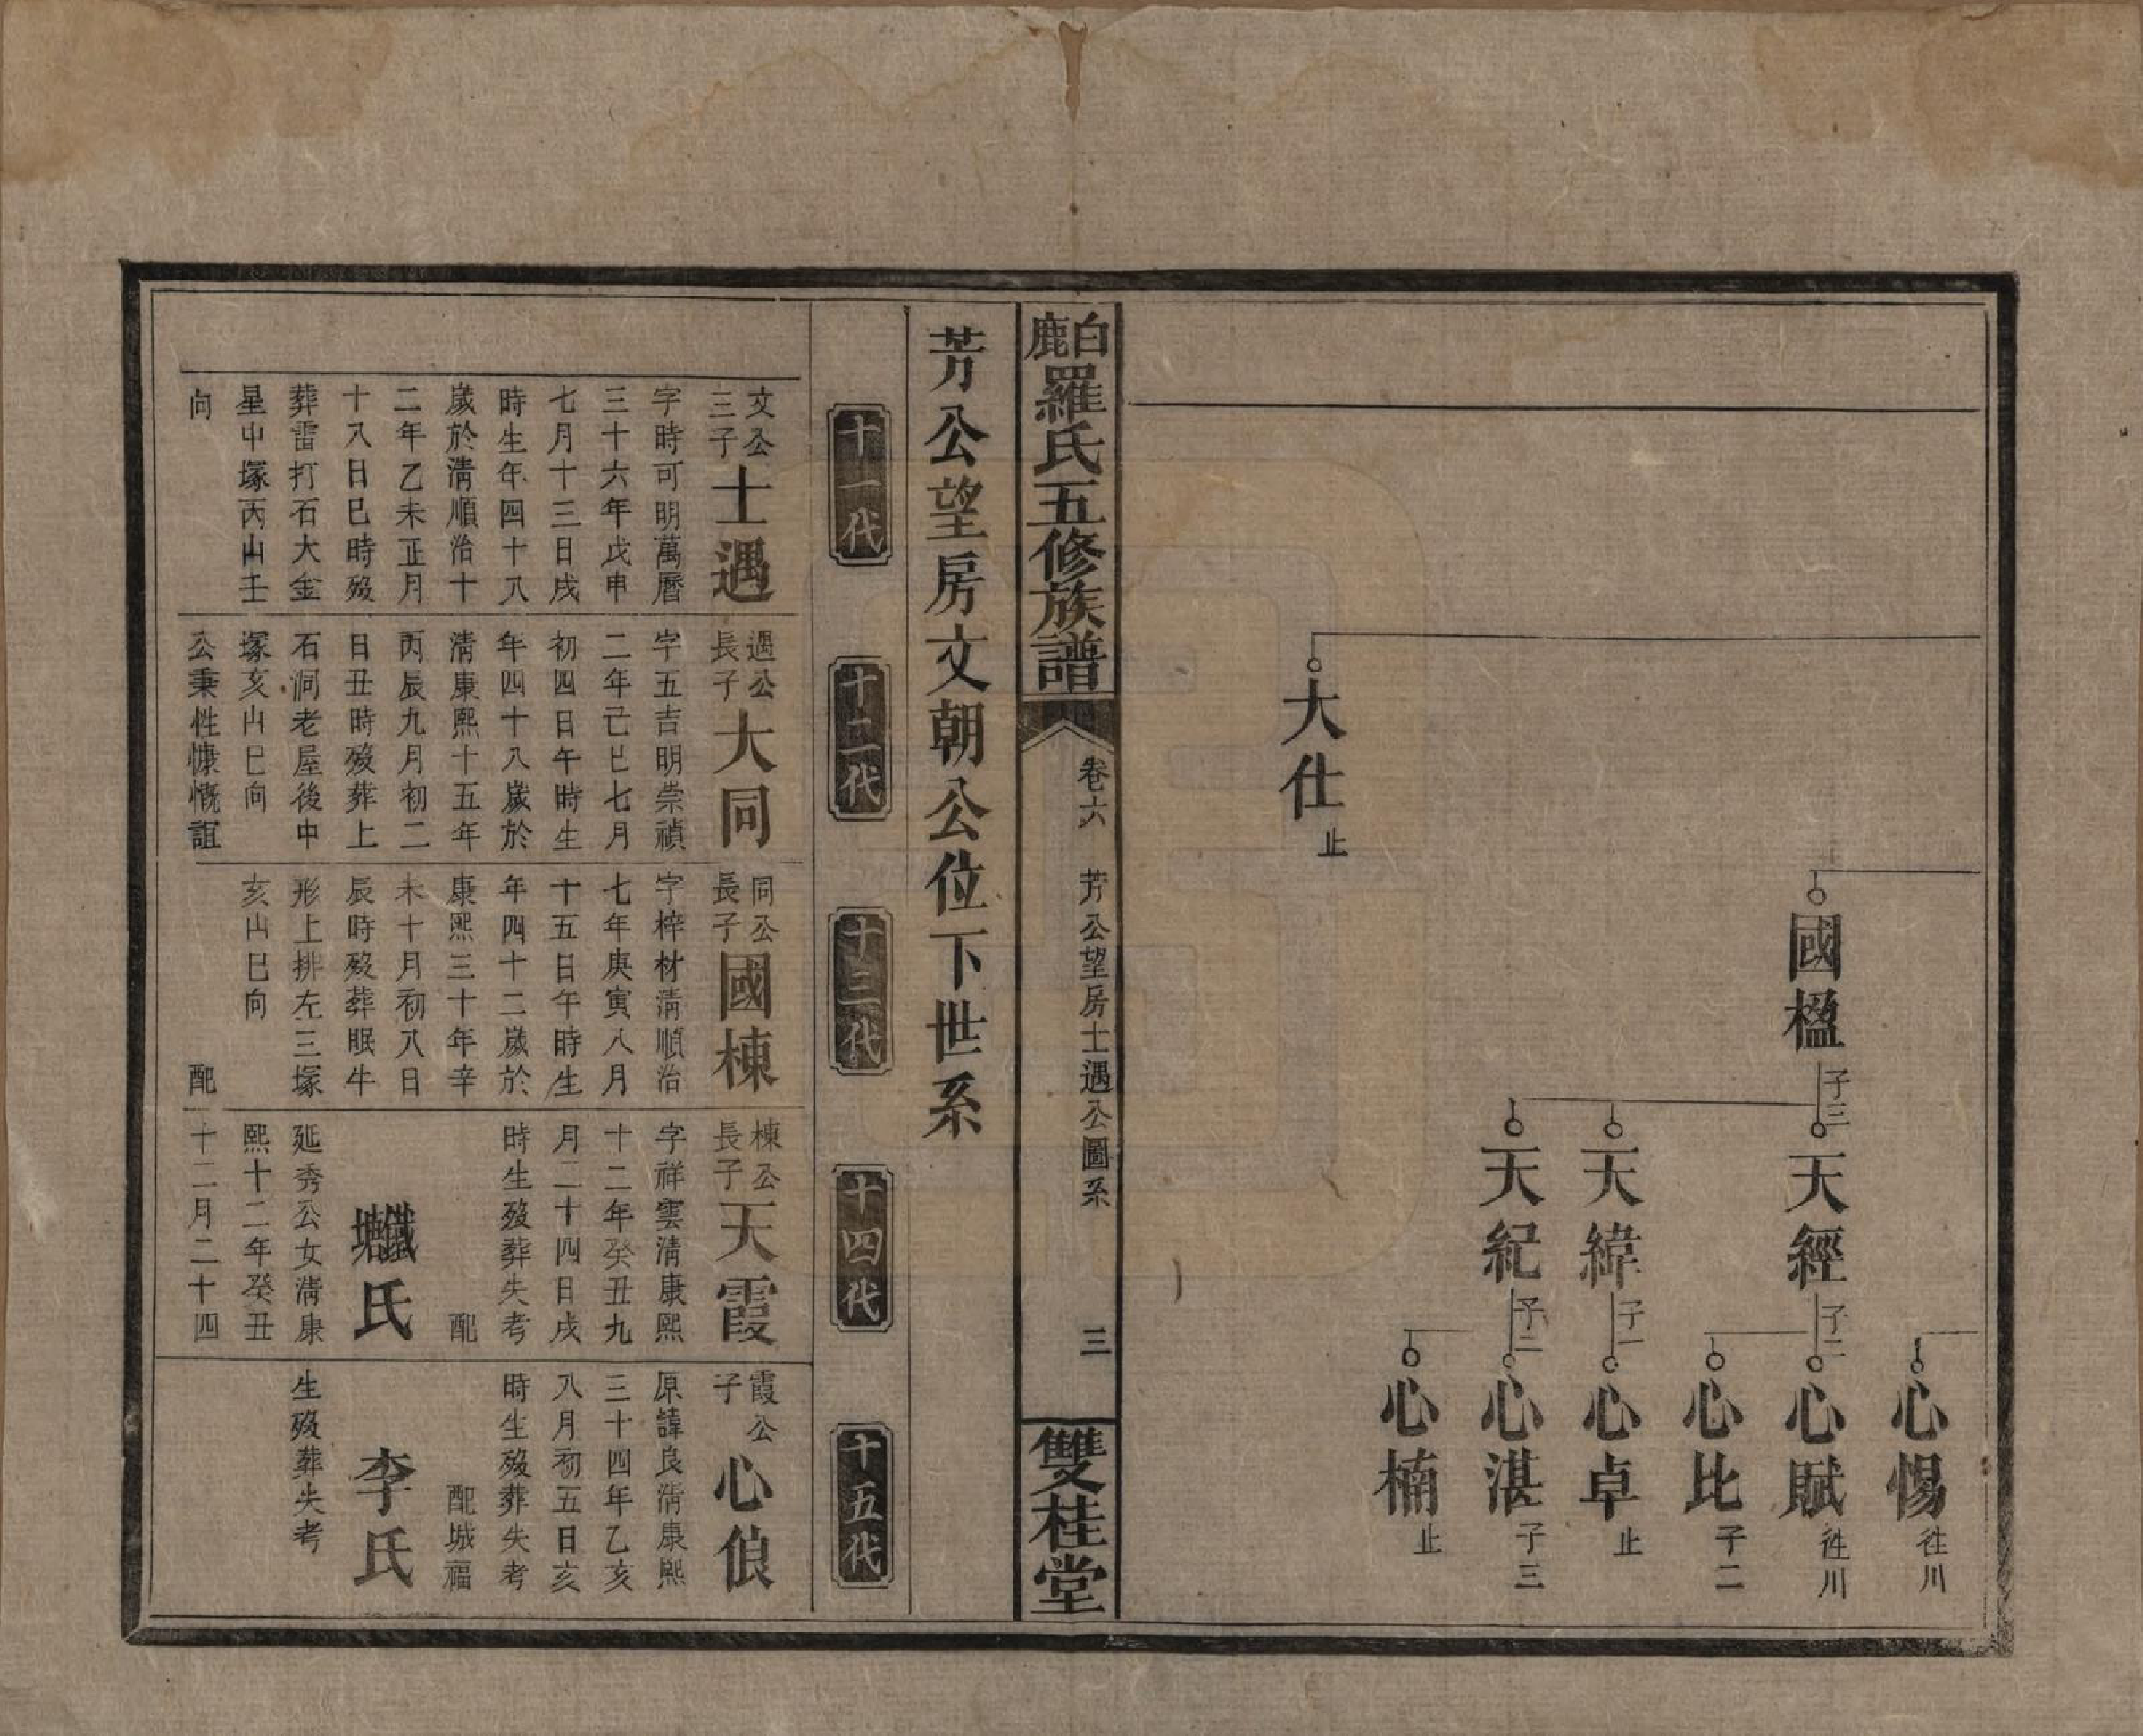 大仕 止
國楹 子三
天經 子二
天緯 子一
天紀 子二
心惕 徃川
心賦 徃川
心比 子二
心卓 止
心湛 子三
心楠 止
白鹿羅氏五修族譜
卷六 芳公望房士遇公圖系
三
雙桂堂
芳公望房文朝公位下世系
十一代
十二代
十三代
十四代
十五代
文公三子 士遇
字時可明萬曆
三十六年戊申
七月十三日戌
時生年四十八
歲於淸順治十
二年乙未正月
十八日巳時歿
葬雷打石大金
星中塚丙山壬
向
遇公長子 大同
字五吉明崇禎
二年己巳七月
初四日午時生
年四十八歲於
淸康熙十五年
丙辰九月初二
日丑時歿葬上
石洞老屋後中
塚亥山巳向
公秉性慷慨誼
同公長子 國棟
字梓材淸順治
七年庚寅八月
十五日午時生
年四十二歲於
康熙三十年辛
未十月初八日
辰時歿葬眠牛
形上排左三塚
亥山巳向
配
棟公長子 天霞
字祥雲淸康熙
十二年癸丑九
月二十四日戌
時生歿葬失考
配
氏
延秀公女淸康
熙十二年癸丑
十二月二十四
霞公子 心俍
原諱良淸康熙
三十四年乙亥
八月初五日亥
時生歿葬失考
配城福
李氏
生歿葬失考